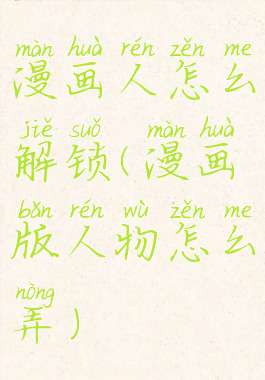 màn huà rén zěn me
漫画人怎么
jiě suǒ màn huà
解锁(漫画
bǎn rén wù zěn me
版人物怎么
nòng
弄)